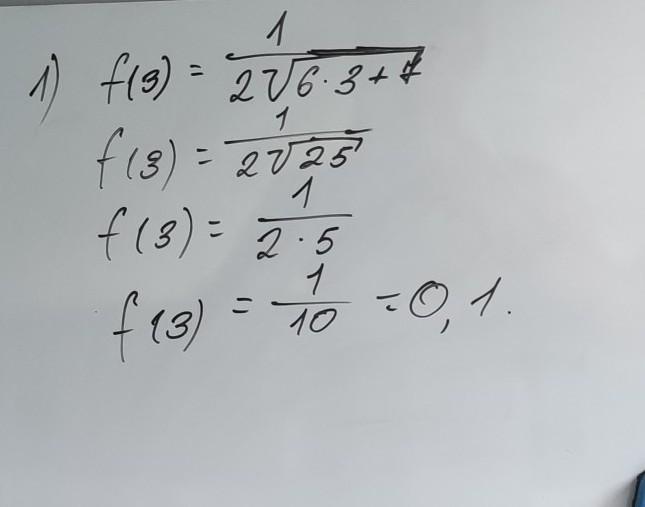 1) f(3) = 1/(2√(6·3+7))
f(3) = 1/(2√25)
f(3) = 1/(2·5)
f(3) = 1/10 = 0,1.